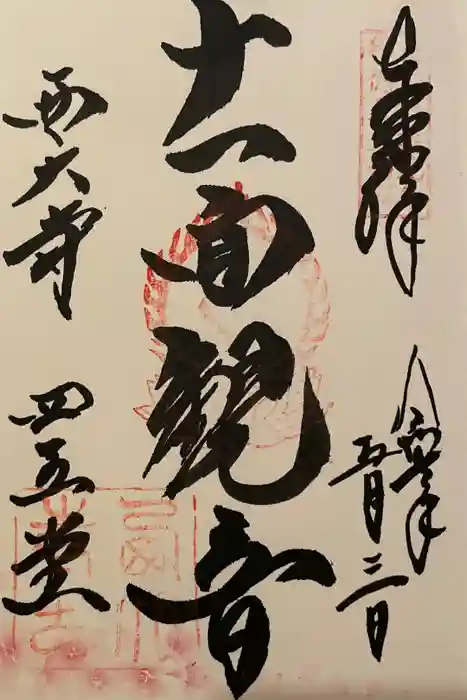 奉拝
令和七年
五月三日
十一面観音
西大寺
四王堂